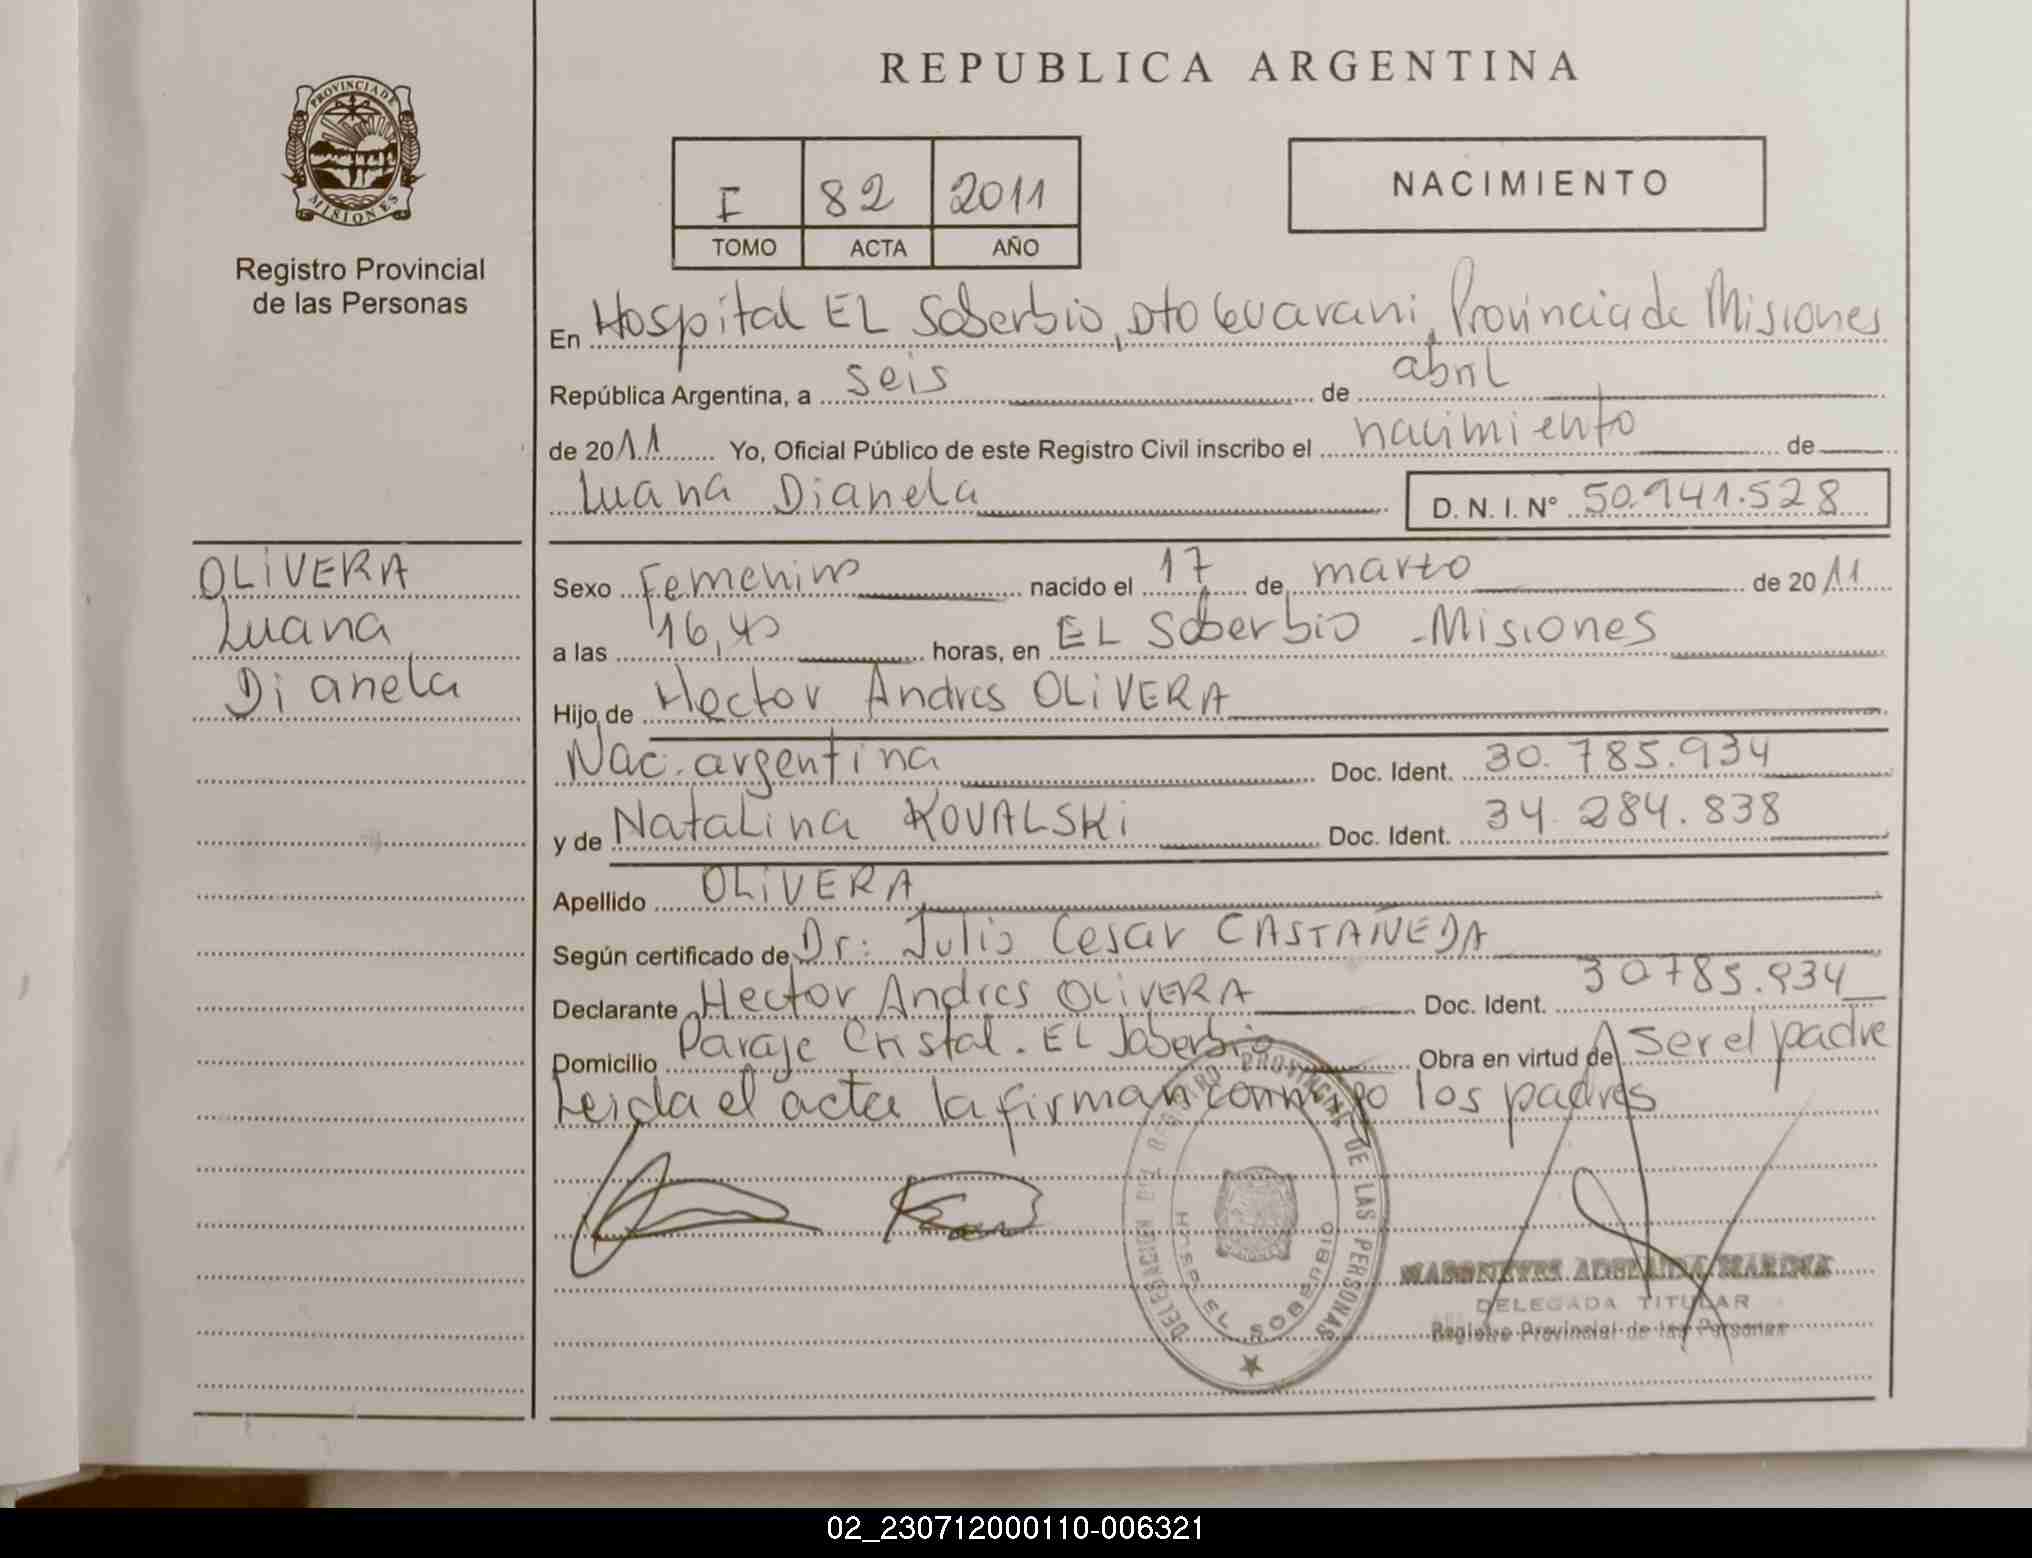 REPUBLICA ARGENTINA
PROVINCIA DE
MISIONES
Registro Provincial
de las Personas
I 82 2011
TOMO ACTA AÑO
NACIMIENTO
En Hospital EL Soberbio, Dto Guarani, Provincia de Misiones
República Argentina, a seis de abril
de 2011 Yo, Oficial Público de este Registro Civil inscribo el nacimiento de
Luana Dianela D. N. I. N° 50.941.528
OLIVERA
Luana
Dianela
Sexo Femenino nacido el 17 de marzo de 2011
a las 16,40 horas, en EL Soberbio - Misiones
Hijo de Hector Andres OLIVERA
Nac. argentina Doc. Ident. 30.785.934
y de Natalina KOVALSKI Doc. Ident. 34.284.838
Apellido OLIVERA
Según certificado de Dr: Julio Cesar CASTAÑEDA
Declarante Hector Andres OLIVERA Doc. Ident. 30785.934
Domicilio Paraje Cristal. EL Soberbio Obra en virtud de ser el padre
Leida el acta la firman conmigo los padres
PROVINCIAL DE LAS PERSONAS
HOSP. EL SOBERBIO
DELEGADA TITULAR
Registro Provincial de las Personas
02_230712000110-006321